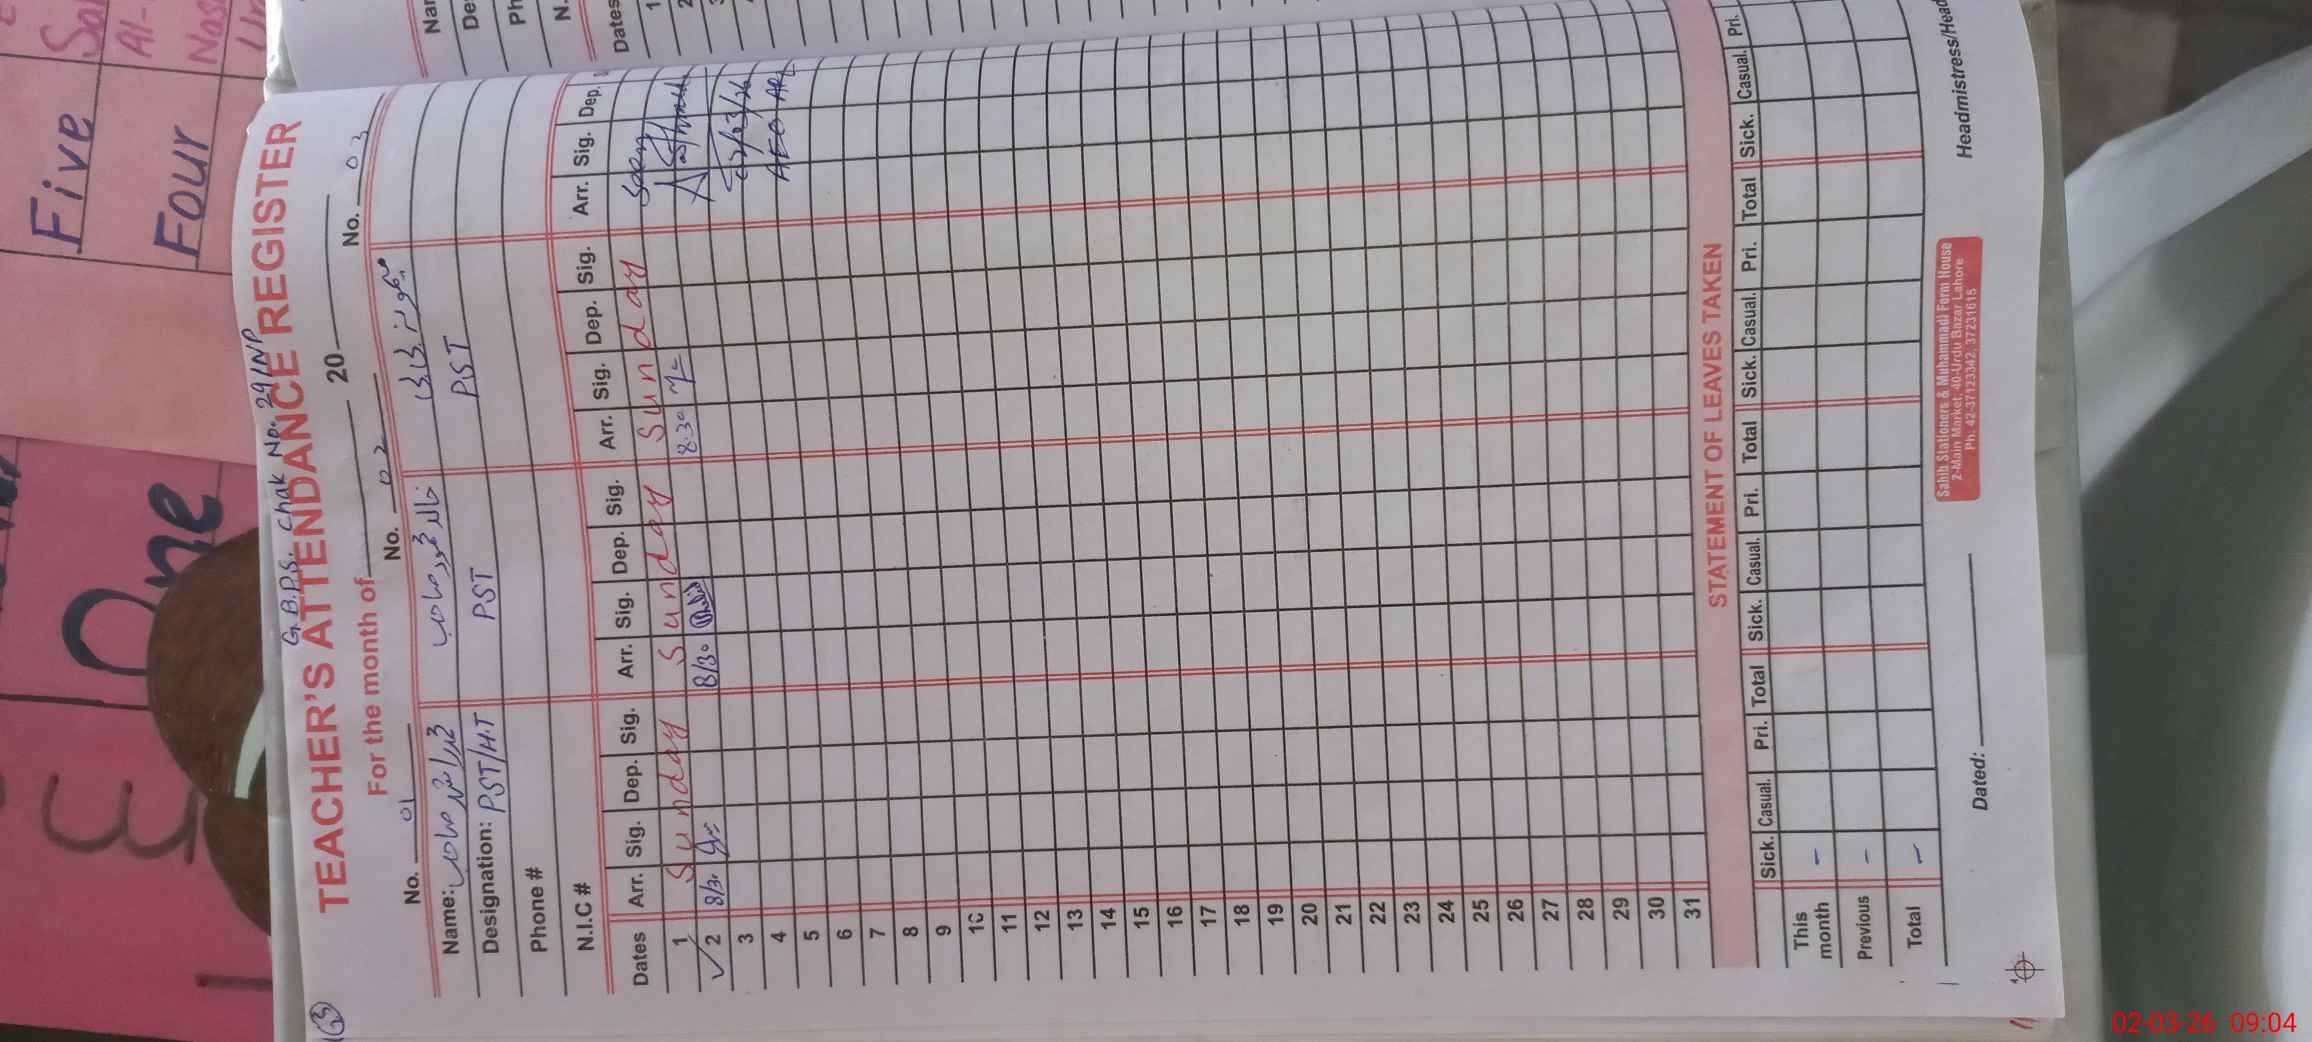 Five
Four
One
63
G.B.P.S. Chak No. 29/NP
TEACHER'S ATTENDANCE REGISTER
For the month of 20
No. 01 No. 02 No. 03
Name:
Designation: PST/H.T PST PST
Phone #
N.I.C #
Dates Arr. Sig. Dep. Sig. Arr. Sig. Dep. Sig. Arr. Sig. Dep. Sig. Arr. Sig. Dep.
1 Sunday Sunday Sunday Seen
2 8/30 8/30 8:30
3 02/03/26
4 AEO
5
6
7
8
9
10
11
12
13
14
15
16
17
18
19
20
21
22
23
24
25
26
27
28
29
30
31
STATEMENT OF LEAVES TAKEN
Sick. Casual. Pri. Total Sick. Casual. Pri. Total Sick. Casual. Pri. Total Sick. Casual. Pri.
This month –
Previous –
Total –
Dated:
Headmistress/Head
Sahib Stationers & Muhammadi Form House
2-Main Market, 40-Urdu Bazar Lahore
Ph: 42-37123342, 37231615
Dates
1
2
N.
02-03-26 09:04